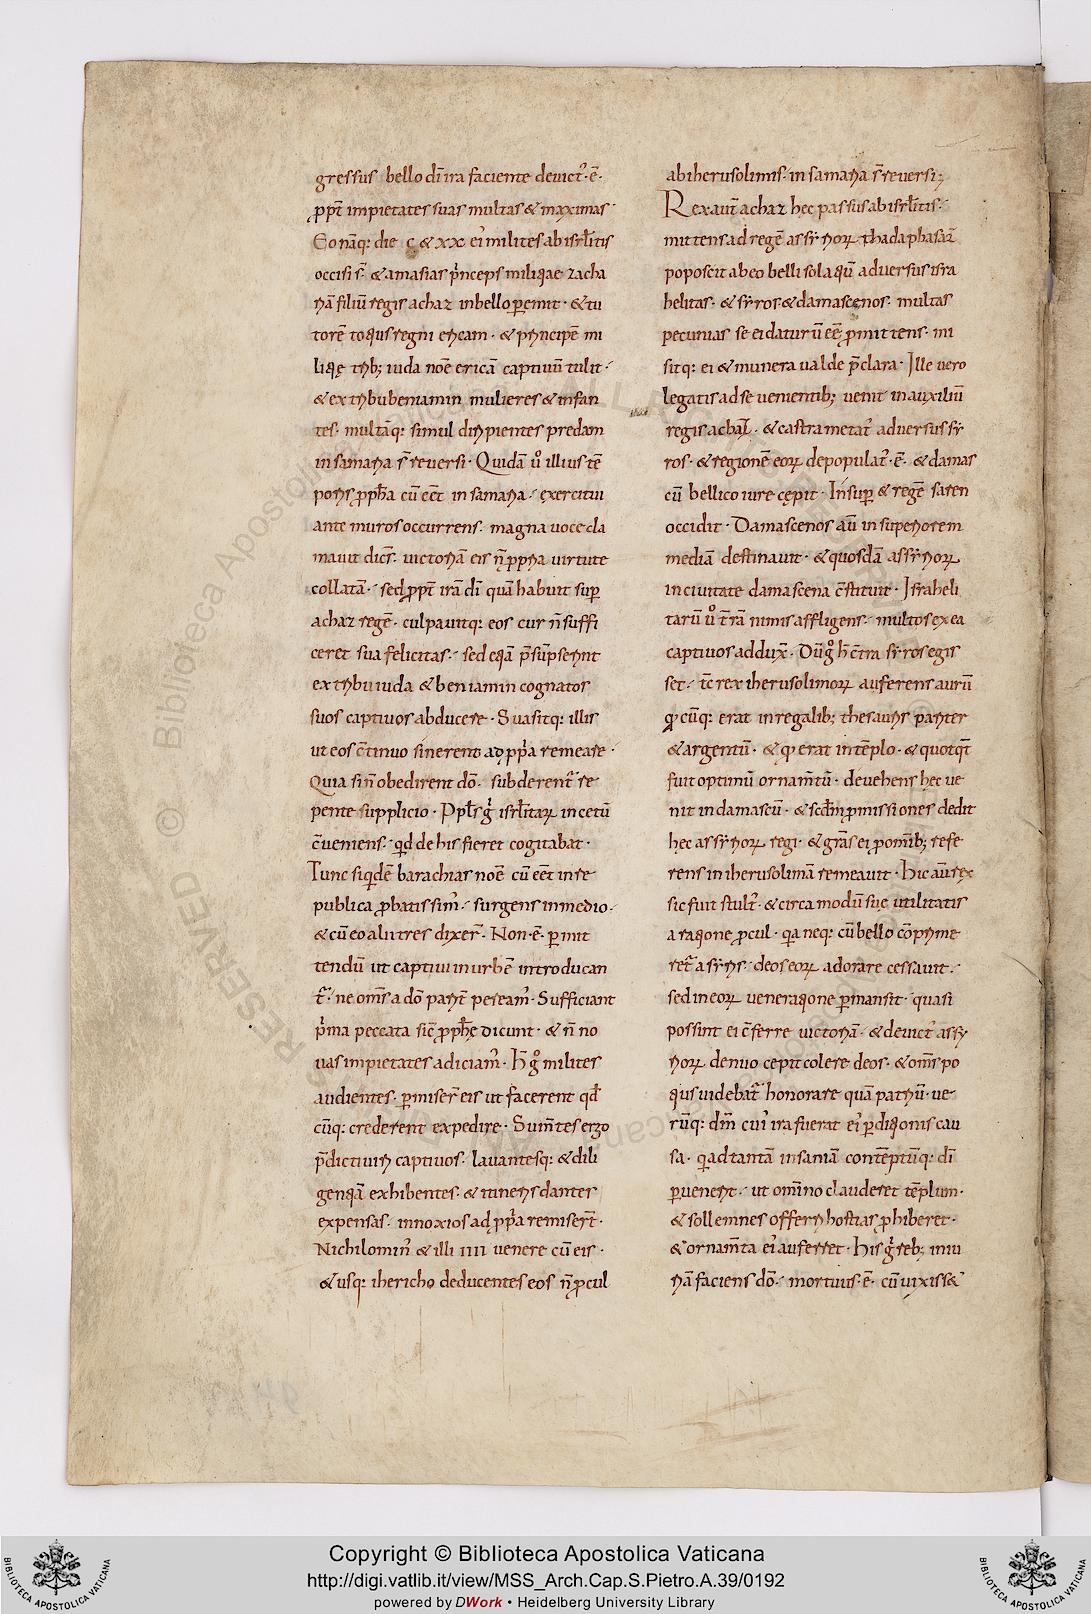 gressus bello dī ira faciente deuict᷒ ē·
ꝓpt̄ impietates suas multas & maximas·
Eo nāq: die c & xx ei᷒ milites ab isrl̄itis
occisi s̄· & amasias p̄nceps militiae zacha
riā filiū regis achaz in bello ꝑemit· & tu
torē totius regni ericam· & principē mi
litię trib; iuda noē ericā captiuū tulit·
& ex tribu beniamin mulieres & infan
tes· multāq: simul diripientes predam
in samaria s̄ reuersi· Quidā ů illius tē
poris ꝓph̄a cū eēt in samaria· exercitui
ante muros occurrens· magna uoce cla
mauit dicēs· uictoriā eis n̄ ꝓpria uirtute
collatā· sed ꝓpt̄ irā dī quā habuit suꝑ
achaz regē· culpauitq: eos cur n̄ suffi
ceret sua felicitas· sed etiā p̄sūpserint
ex tribu iuda & beniamin cognatos
suos captiuos abducere· Suasitq: illis
ut eos c̄tinuo sinerent ad ꝓpria remeare·
Quia si n̄ obedirent dō· subderent᷒ re
pente supplicio· Ppl̄s g̊ isrl̄itarꝝ in cetū
c̄ueniens· qd de his fieret cogitabat·
Tunc siqdē barachias noē cū eēt in re
publica ꝓbatissim᷒· surgens in medio·
& cū eo alii tres dixer̄· Non ē ꝑmit
tendū ut captiui in urbē introducan
t᷒· ne oms a dō parit̄ peream᷒· Sufficiant
p̄ma peccata sic ꝓph̄ę dicunt· & n̄ no
uas impietates adiciam᷒· H g̊ milites
audientes· ꝑmiser̄ eis ut facerent qd
cūq: crederent expedire· Sum̄tes ergo
p̄dicti uiri captiuos· lauantesq: & dili
gentiā exhibentes· & itineris dantes
expensas· innoxios ad ꝓpria remiser̄t·
Nichilomin᷒ & illi iiii uenere cū eis·
& usq: ihericho deducentes eos n̄ ꝓcul
ab iherusolimis· in samaria s̄ reuersi;
Rex aut̄ achaz hec passus ab isrl̄itis·
mittens ad regē assyriorꝝ thadaphasar
poposcit ab eo belli solatiū aduersus isra
helitas· & syros & damascenos· multas
pecunias se ei daturū eē ꝓmittens· mi
sitq: ei & munera ualde p̄clara· Ille uero
legatis ad se uenientib; uenit in auxiliū
regis achaz· & castra metat᷒ aduersus sy
ros· & regionē eorꝝ depopulat᷒ ē· & damas
cū bellico iure cępit· Insuꝑ & regē rasen
occidit· Damascenos aū in superiorem
mediā destinauit· & quosdā assyriorꝝ
in ciuitate damascena c̄stituit· Israheli
tarū ů t̄rā nimis affligens· multos ex ea
captiuos addux̄· Dū g̊ h c̄tra syros egis
set· tc̄ rex iherusolimorꝝ auferens aurū
qd cūq: erat in regalib; thesauris pariter
& argentū· & qd erat in tēplo· & quotqt
fuit optimū ornam̄tū· deuehens hec ue
nit in damascū· & sedm ꝓmissiones dedit
hec assyriorꝝ regi· & gr̄as ei ꝓ omib; refe
rens in iherusolimā remeauit· Hic aū rex
sic fuit stult᷒· & circa modū suę utilitatis
a ratione ꝓcul· qa neq: cū bello cōprime
ret᷒ a syris· deos eorꝝ adorare cessauit·
sed in eorꝝ ueneratione ꝑmansit· quasi
possint ei c̄ferre uictoriā· & deuict᷒ assy
riorꝝ denuo cepit colere deos· & oms po
tius uidebat᷒ honorare quā patriū· ue
rūq: dm̄ cui᷒ ira fuerat ei᷒ ꝑditionis cau
sa· q ad tantā insaniā contēptūq: dī
ꝑuenerit· ut omīno clauderet tēplum·
& sollemnes offerri hostias ꝓhiberet·
& ornam̄ta ei᷒ auferret· His g̊ reb; iniu
riā faciens dō· mortuus ē· cū uixiss&
Copyright © Biblioteca Apostolica Vaticana
http://digi.vatlib.it/view/MSS_Arch.Cap.S.Pietro.A.39/0192
powered by DWork • Heidelberg University Library